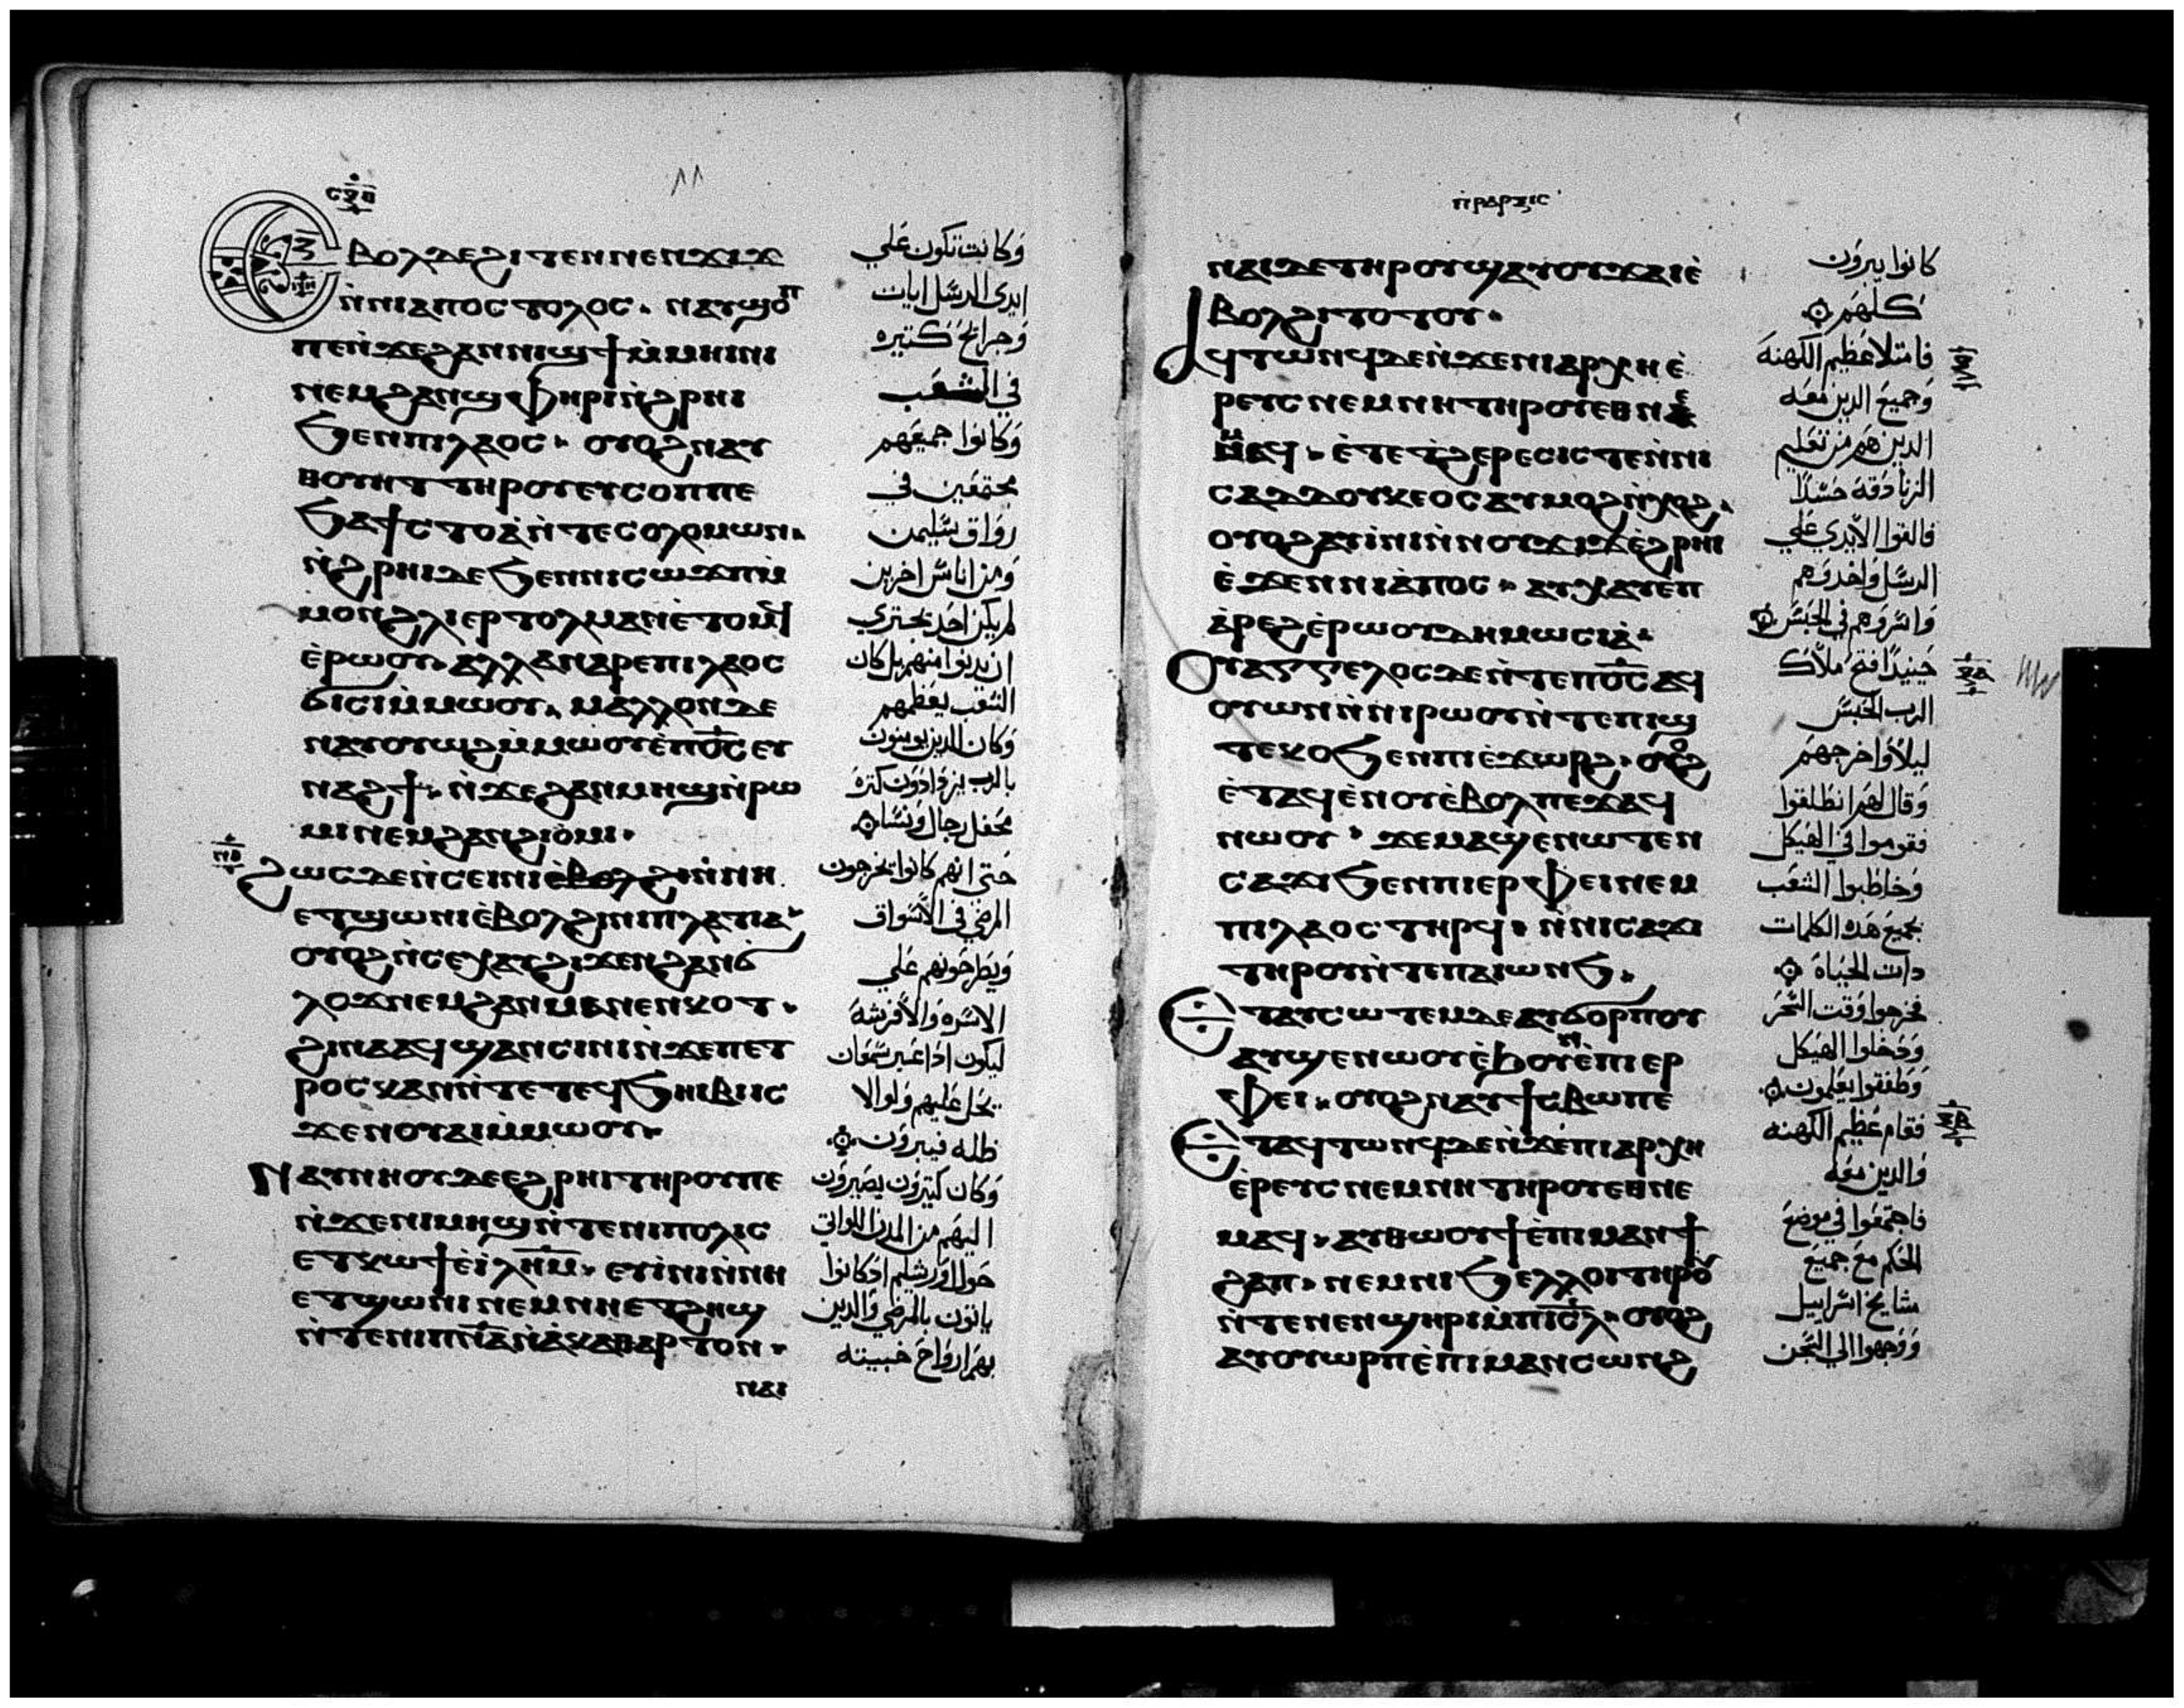 ⲥϩⲃ
١١
Ⲉⲃⲟⲗⲇⲉϩⲓⲧⲉⲛⲛⲉⲛϫⲓϫ
ⲛ̀ⲛⲓⲁⲡⲟⲥⲧⲟⲗⲟⲥ. ⲛⲁⲩϣⲟⲡ
ⲡⲉⲛ̀ϫⲉϩⲁⲛⲛⲓϣϯⲙ̀ⲙⲏⲓⲛⲓ
ⲛⲉⲙϩⲁⲛϣⲫⲏⲣⲓⲛ̀ϩⲣⲏⲓ
ϧⲉⲛⲡⲓⲗⲁⲟⲥ. ⲟⲩⲟϩⲛⲁⲩ
ⲑⲟⲩⲏⲧⲧⲏⲣⲟⲩⲉⲩⲥⲟⲡⲡⲉ
ϧⲁϯⲥⲧⲟⲁ̀ⲛ̀ⲧⲉⲥⲟⲗⲟⲙⲱⲛ.
ⲛ̀ϩⲣⲏⲓⲇⲉϧⲉⲛⲛⲓⲥⲱϫⲡⲙ̀
ⲙⲟⲛϩⲗⲓⲉⲣⲧⲟⲗⲙⲁⲛⲉ̀ⲧⲟⲙϥ
ⲉ̀ⲣⲱⲟⲩ. ⲁ̀ⲗⲗⲁⲛⲁⲣⲉⲡⲓⲗⲁⲟⲥ
ϭⲓⲥⲓⲙ̀ⲙⲱⲟⲩ. ⲙⲁⲗⲗⲟⲛⲇⲉ
ⲛⲁⲩⲟⲩⲱϩⲙ̀ⲙⲱⲟⲩⲉ̀ⲡⲟ̅ⲥ̅ⲉⲩ
ⲛⲁϩϯ. ⲛ̀ϫⲉϩⲁⲛⲙⲏϣⲛ̀ⲣⲱ
ⲙⲓⲛⲉⲙϩⲁⲛϩⲓⲟ̀ⲙⲓ.
ϩⲱⲥⲇⲉⲛ̀ⲥⲉⲓⲛⲓⲉ̀ⲃⲟⲗϩⲓⲛ̀ⲛⲏ
ⲉⲧϣⲱⲛⲓⲉ̀ⲃⲟⲗϩⲓⲛⲓⲡⲗⲁⲧⲓⲁ
ⲟⲩⲟϩⲛ̀ⲥⲉⲭⲁⲩϩⲓϫⲉⲛϩⲁⲛϭ
ⲗⲟϫⲛⲉⲙϩⲁⲛⲙⲁⲛⲉⲛⲕⲟⲧ.
ϩⲓⲛⲁⲁϥϣⲁⲛⲥⲓⲛⲓⲛ̀ϫⲉⲡⲉⲧ
ⲣⲟⲥⲕⲁⲛⲛ̀ⲧⲉⲧⲉϥϧⲏⲓⲃⲓⲓⲥ
ϫⲉⲛⲟⲩⲁⲓⲙ̀ⲙⲱⲟⲩ.
Ⲛⲁⲩⲛⲏⲟⲩⲇⲉⲉϩⲣⲏⲓⲧⲏⲣⲟⲩⲡⲉ
ⲛ̀ϫⲉⲛⲓⲙⲏϣⲛ̀ⲧⲉⲛⲓⲡⲟⲗⲓⲥ
ⲉⲧⲕⲱϯⲉ̀ⲓ̀ⲗ̅ⲏ̅ⲙ̅. ⲉⲩⲓ̀ⲛⲓⲛ̀ⲛⲏ
ⲉⲧϣⲱⲛⲓⲛⲉⲙⲛⲏⲉⲧϩⲏϣ
ⲛ̀ⲧⲉⲛⲓⲡⲛ̅ⲁ̅ⲛ̀ⲁ̀ⲕⲁⲑⲁⲣⲧⲟⲛ.
ⲛⲁⲓ
وكانت تكون علي
ايدى الرسل ايات
وجرايح كتيره
في الشعب
وكانوا جميعهم
مجتمعين في
رواق سليمن
ومن اناس اخرين
لم يكن احد يجتري
ان يدنوا منهم بل كان
الشعب يعظمهم
وكان الدين يومنون
بالرب يزدادون كترة
محفل رجال ونسا
حتى انهم كانوا يخرجون
المرضي في الاسواق
ويطرحونهم علي
الاسره والافرشه
ليكون ادا عبر سمعان
يحل عليهم ولو الا
ظله فيبرون
وكان كتيرون يصيرون
اليهم من المدن اللواتي
حول اورشليم ادكانوا
ياتون بالمرضي والدين
بهم ارواح خبيته
ⲡⲣⲁⲝⲓⲥ
ⲛⲁⲓⲇⲉⲧⲏⲣⲟⲩϣⲁⲩⲟⲩϫⲁⲓⲉ̀
ⲃⲟⲗϩⲓⲧⲟⲧⲟⲩ.
ⲁϥⲧⲱⲛϥⲇⲉⲛ̀ϫⲉⲛⲓⲁⲣⲭⲏⲉ̀
ⲣⲉⲩⲥⲛⲉⲙⲛⲏⲧⲏⲣⲟⲩⲉⲑⲛⲉ
ⲙⲁϥ. ⲉ̀ⲧⲉϯϩⲉⲣⲉⲥⲓⲥⲧⲉⲛ̀ⲛⲓ
ⲥⲁⲇⲇⲟⲩⲕⲉⲟⲥⲁⲩⲙⲟϩⲛ̀ⲭⲟϩ.
ⲟⲩⲟϩⲁⲩⲓ̀ⲛⲓⲛ̀ⲛⲟⲩϫⲓϫⲉ̀ϩⲣⲏⲓ
ⲉ̀ϫⲉⲛⲛⲓⲁ̀ⲡⲟⲥ. ⲁⲩⲭⲁⲩⲉ̀ⲡ
ⲁ̀ⲣⲉϩⲉ̀ⲣⲱⲟⲩⲇⲏⲙⲱⲥⲓⲁ̀.
Ⲟⲩⲁⲅⲅⲉⲗⲟⲥⲇⲉⲛ̀ⲧⲉⲡⲟ̅ⲥ̅ⲁϥ
ⲟⲩⲱⲛⲛ̀ⲛⲓⲣⲱⲟⲩⲛ̀ⲧⲉⲡⲓϣ
ⲧⲉⲕⲟϧⲉⲛⲡⲓⲉ̀ϫⲱⲣϩ. ⲟⲩⲟϩ
ⲉ̀ⲧⲁϥⲉ̀ⲛⲟⲩⲉ̀ⲃⲟⲗⲡⲉϫⲁϥ
ⲛⲱⲟⲩ. ϫⲉⲙⲁϣⲉⲛⲱⲧⲉⲛ
ⲥⲁϫⲓϧⲉⲛⲡⲓⲉⲣⲫⲉⲓⲛⲉⲙ
ⲡⲓⲗⲁⲟⲥⲧⲏⲣϥ. ⲛ̀ⲛⲓⲥⲁϫⲓ
ⲧⲏⲣⲟⲩⲛ̀ⲧⲉⲡⲁⲓⲱⲛϧ.
Ⲉⲧⲁⲩⲥⲱⲧⲉⲙⲇⲉⲁⲩϭⲟⲣⲡⲟⲩ
ⲁⲩϣⲉⲛⲱⲟⲩⲉ̀ϧⲟⲩⲛⲉ̀ⲡⲓⲉⲣ
ⲫⲉⲓ. ⲟⲩⲟϩⲛⲁⲩϯⲥⲃⲱⲡⲉ
Ⲉⲧⲁϥⲧⲱⲛϥⲇⲉⲛ̀ϫⲉⲡⲓⲁⲣⲭⲏ
ⲉ̀ⲣⲉⲩⲥⲛⲉⲙⲛⲏⲧⲏⲣⲟⲩⲉⲑⲛⲉ
ⲙⲁϥ. ⲁⲩⲑⲱⲟⲩϯⲉ̀ⲡⲓⲙⲁⲛϯ
ϩⲁⲡ. ⲛⲉⲙⲛⲓϧⲉⲗⲗⲟⲓⲧⲏⲣⲟⲩ
ⲛ̀ⲧⲉⲛⲉⲛϣⲏⲣⲓⲙ̀ⲡⲓ̅ⲥ̅ⲗ̅. ⲟⲩⲟϩ
ⲁⲩⲟⲩⲱⲣⲡⲉ̀ⲡⲓⲙⲁⲛⲥⲱⲛϩ
كانوا يبرون
كلهم
فامتلا عظيم الكهنة
وجميع الدين معه
الدين هم من تعليم
الزنادقة حسدا
فالقوا الايدي علي
الرسل واخدوهم
واسروهم في الحبس
حينيدا فتح ملاك
الرب الحبس
ليلا واخرجهم
وقال لهم انطلقوا
فقوموا في الهيكل
وخاطبوا الشعب
بجميع هده الكلمات
دات الحياة
فخرجوا وقت السحر
ودخلوا الهيكل
وطفقوا يعلمون
فقام عظيم الكهنه
والدين معه
فاجتمعوا في موضع
الحكم مع جميع
مشايخ اسراييل
ووجهوا الي السجن